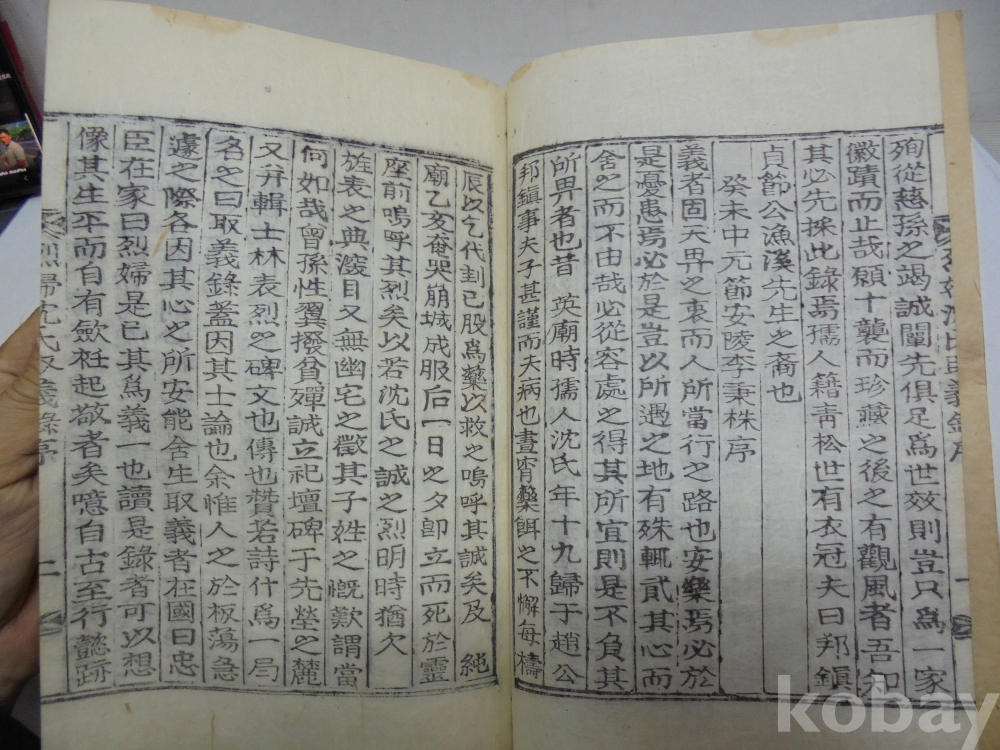 殉從慈孫之竭誠闡先俱足爲世效則豈只爲一家
徽蹟而止哉願十襲而珍藏之後之有觀風者吾知
其必先採此錄焉孺人籍靑松世有衣冠夫曰邦鎭
貞節公漁溪先生之裔也
癸未中元節安陵李秉株序
義者固天畀之衷而人所當行之路也安樂焉必於
是憂患焉必於是豈以所遇之地有殊輒貳其心而
舍之而不由哉必從容處之得其所宜則是不負其
所畀者也昔 英廟時孺人沈氏年十九歸于趙公
邦鎭事夫子甚謹而夫病也晝宵藥餌之不懈每禱
辰以乞代刲己股爲藥以救之嗚呼其誠矣及 純
廟乙亥奄哭崩城成服后一日之夕卽立而死於靈
座前嗚呼其烈矣以若沈氏之誠之烈明時猶欠
旌表之典漤目又無幽宅之徵其子姓之慨歎謂當
何如哉曾孫性翼撥貧殫誠立祀壇碑于先塋之麓
又幷輯士林表烈之碑文也傳也贊若詩什爲一局
名之曰取義錄蓋因其士論也余惟人之於板蕩急
遽之際各因其心之所安能舍生取義者在國曰忠
臣在家曰烈婦是已其爲義一也讀是錄者可以想
像其生平而自有斂衽起敬者矣噫自古至行懿跡
烈婦沈氏取義錄序
二
kobay